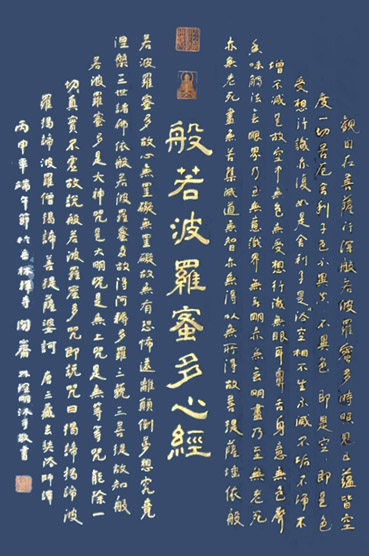 觀自在菩薩行深般若波羅蜜多時照見五蘊皆空
度一切苦厄舍利子色不異空 不異色 即是空 即是色
受想行識亦復如是舍利子是諸法空相不生不滅不垢不淨不
增不減是故空中無色無受想行識無眼耳鼻舌身意無色聲
香味觸法無眼界乃至無意識界無無明亦無無明盡乃至無老死
亦無老死盡無苦集滅道無智亦無得以無所得故菩提薩埵依般
般若波羅蜜多心經
若波羅蜜多故心無罣礙無罣礙故無有恐怖遠離顛倒夢想究竟
涅槃三世諸佛依般若波羅蜜多故得阿耨多羅三藐三菩提故知般
若波羅蜜多是大神咒是大明咒是無上咒是無等等咒能除一
切真實不虛故說般若波羅蜜多咒即說咒曰揭諦揭諦波
羅揭諦波羅僧揭諦菩提薩婆訶 唐三藏玄奘法師譯
丙申年端午節於林禪寺沐手敬書